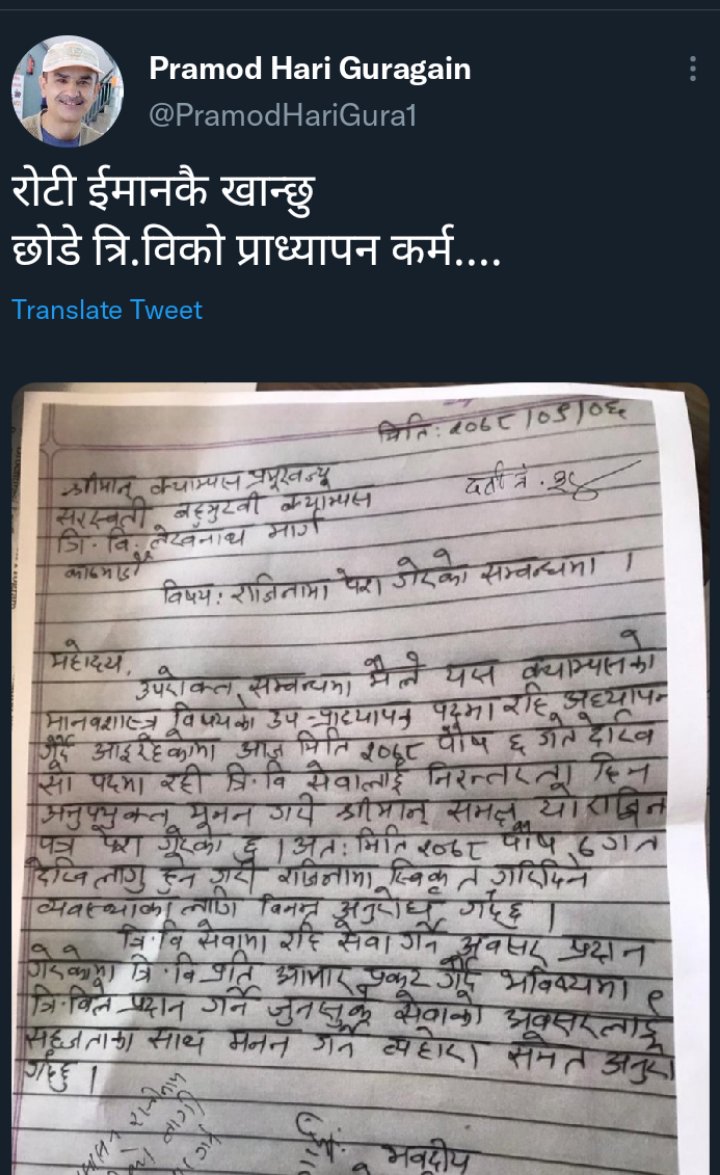 Pramod Hari Guragain
@PramodHariGura1
रोटी ईमानकै खान्छु
छोडे त्रि.विको प्राध्यापन कर्म....
Translate Tweet
मिति: २०६८/०९/०६
दर्ता नं.
श्रीमान् क्याम्पस प्रमुखज्यू
सरस्वती बहुमुखी क्याम्पस
त्रि. वि. लेखनाथ मार्ग
काठमाडौं
विषय: राजिनामा पेश गरेको सम्बन्धमा ।
महोदय,
उपरोक्त सम्बन्धमा मैले यस क्याम्पसको
मानवशास्त्र विषयको उप-प्राध्यापन पदमा रहि अध्यापन
गर्दै आइरहेकोमा आज मिति २०६८ पौष ६ गते देखि
सो पदमा रही त्रि.वि सेवालाई निरन्तरता दिन
अनुपयुक्त श्रीमान् समक्ष यो
पत्र पेश गरेको छु । अत: मिति २०६८ पौष ६ गते
देखि लागु हुने गरी राजिनामा स्विकृत गरिदिने
व्यवस्थाका लागि विनम्र अनुरोध गर्दछु ।
त्रि.वि सेवामा रहि सेवा गर्ने अवसर प्रदान
गरेकोमा त्रि.वि प्रति आभार प्रकट गर्दै भविष्यमा
त्रि.विले प्रदान गर्ने जुनसुकै सेवाको अवसरलाई
सहजताका साथ मनन गर्ने व्यहोरा समेत
गर्दछु ।
भवदीय